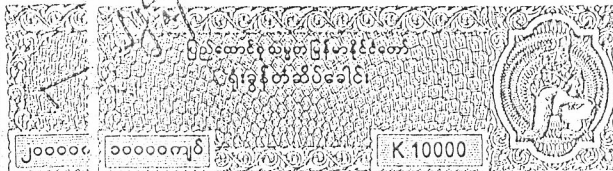 ပြည်ထောင်စုသမ္မတမြန်မာနိုင်ငံတော်
ရုံးခွန်တံဆိပ်ခေါင်း
၂၀၀၀၀ ၁၀၀၀၀ကျပ် K.10000